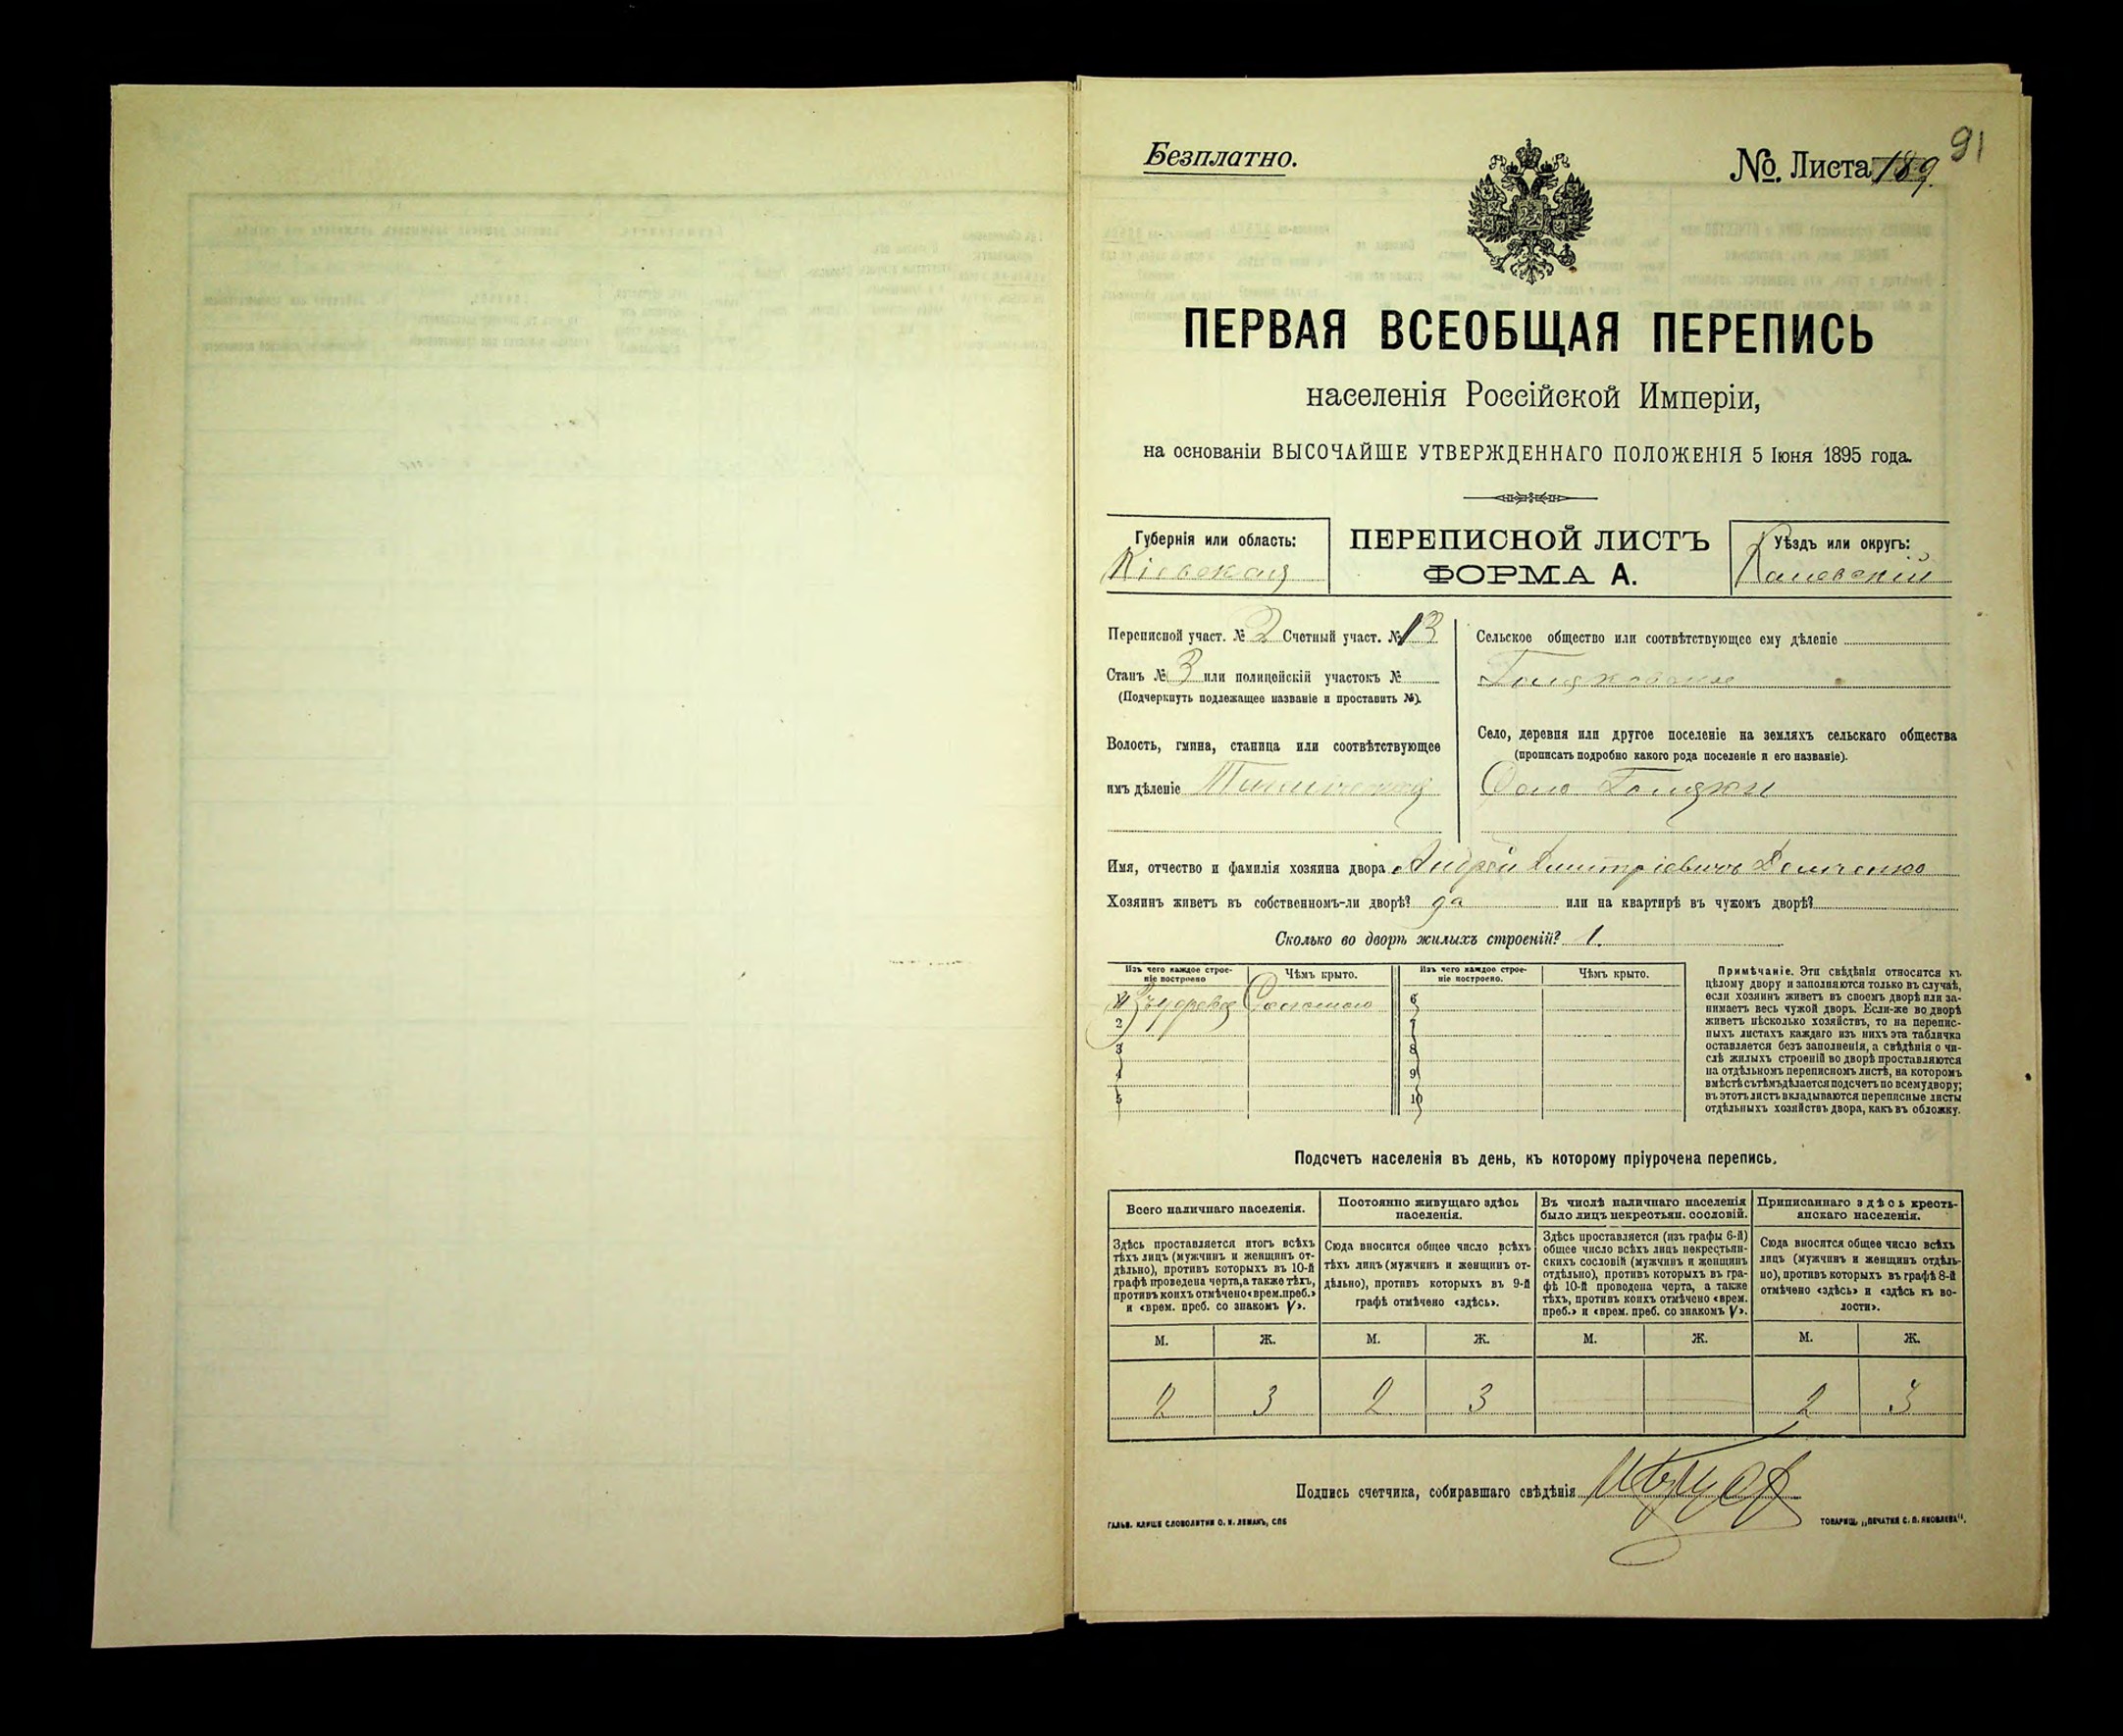 Безплатно.
№. Листа 189.
91
ПЕРВАЯ ВСЕОБЩАЯ ПЕРЕПИСЬ
населенія Россійской Имперіи,
на основаніи ВЫСОЧАЙШЕ УТВЕРЖДЕННАГО ПОЛОЖЕНІЯ 5 Іюня 1895 года.
Губернія или область:
Кіевская
ПЕРЕПИСНОЙ ЛИСТЪ
ФОРМА А.
Уѣздъ или округъ:
Каневскій
Переписной участ. № 2 Счетный участ. № 13
Станъ № 3 или полицейскій участокъ №
(Подчеркнуть подлежащее названіе и проставить №).
Волость, гмина, станица или соотвѣтствующее
имъ дѣленіе
Сельское общество или соотвѣтствующее ему дѣленіе
Село, деревня или другое поселеніе на земляхъ сельскаго общества
(прописать подробно какого рода поселеніе и его названіе).
Село
Имя, отчество и фамилія хозяина двора Андрей Дмитріевичъ
Хозяинъ живетъ въ собственномъ-ли дворѣ? да или на квартирѣ въ чужомъ дворѣ?
Сколько во дворѣ жилыхъ строеній? 1.
Изъ чего каждое строе-
ніе построено
Чѣмъ крыто.
Изъ чего каждое строе-
ніе построено.
Чѣмъ крыто.
1 Соломою 6
2 7
3 8
4 9
5 10
Примѣчаніе. Эти свѣдѣнія относятся къ
цѣлому двору и заполняются только въ случаѣ,
если хозяинъ живетъ въ своемъ дворѣ или за-
нимаетъ весь чужой дворъ. Если-же во дворѣ
живетъ нѣсколько хозяйствъ, то на перепис-
ныхъ листахъ каждаго изъ нихъ эта табличка
оставляется безъ заполненія, а свѣдѣнія о чи-
слѣ жилыхъ строеній во дворѣ проставляются
на отдѣльномъ переписномъ листѣ, на которомъ
вмѣстѣ съ тѣмъ дѣлается подсчетъ по всему двору;
въ этотъ листъ вкладываются переписные листы
отдѣльныхъ хозяйствъ двора, какъ въ обложку.
Подсчетъ населенія въ день, къ которому пріурочена перепись.
Всего наличнаго населенія.
Здѣсь проставляется итогъ всѣхъ
тѣхъ лицъ (мужчинъ и женщинъ от-
дѣльно), противъ которыхъ въ 10-й
графѣ проведена черта, а также тѣхъ,
противъ коихъ отмѣчено «врем. преб.»
и «врем. преб. со знакомъ V».
Постоянно живущаго здѣсь
населенія.
Сюда вносится общее число всѣхъ
тѣхъ лицъ (мужчинъ и женщинъ от-
дѣльно), противъ которыхъ въ 9-й
графѣ отмѣчено «здѣсь».
Въ числѣ наличнаго населенія
было лицъ некрестьян. сословій.
Здѣсь проставляется (изъ графы 6-й)
общее число всѣхъ лицъ некрестьян-
скихъ сословій (мужчинъ и женщинъ
отдѣльно), противъ которыхъ въ гра-
фѣ 10-й проведена черта, а также
тѣхъ, противъ коихъ отмѣчено «врем.
преб.» и «врем. преб. со знакомъ V».
Приписаннаго здѣсь кресть-
янскаго населенія.
Сюда вносится общее число всѣхъ
лицъ (мужчинъ и женщинъ отдѣль-
но), противъ которыхъ въ графѣ 8-й
отмѣчено «здѣсь» и «здѣсь къ во-
лости».
М. Ж. М. Ж. М. Ж. М. Ж.
2 3 2 3 2 3
Подпись счетчика, собиравшаго свѣдѣнія
ГАЛЬВ. КЛИШЕ СЛОВОЛИТНИ О. И. ЛЕМАНЪ, СПБ
ТОВАРИЩ. „ПЕЧАТНЯ С. П. ЯКОВЛЕВА".